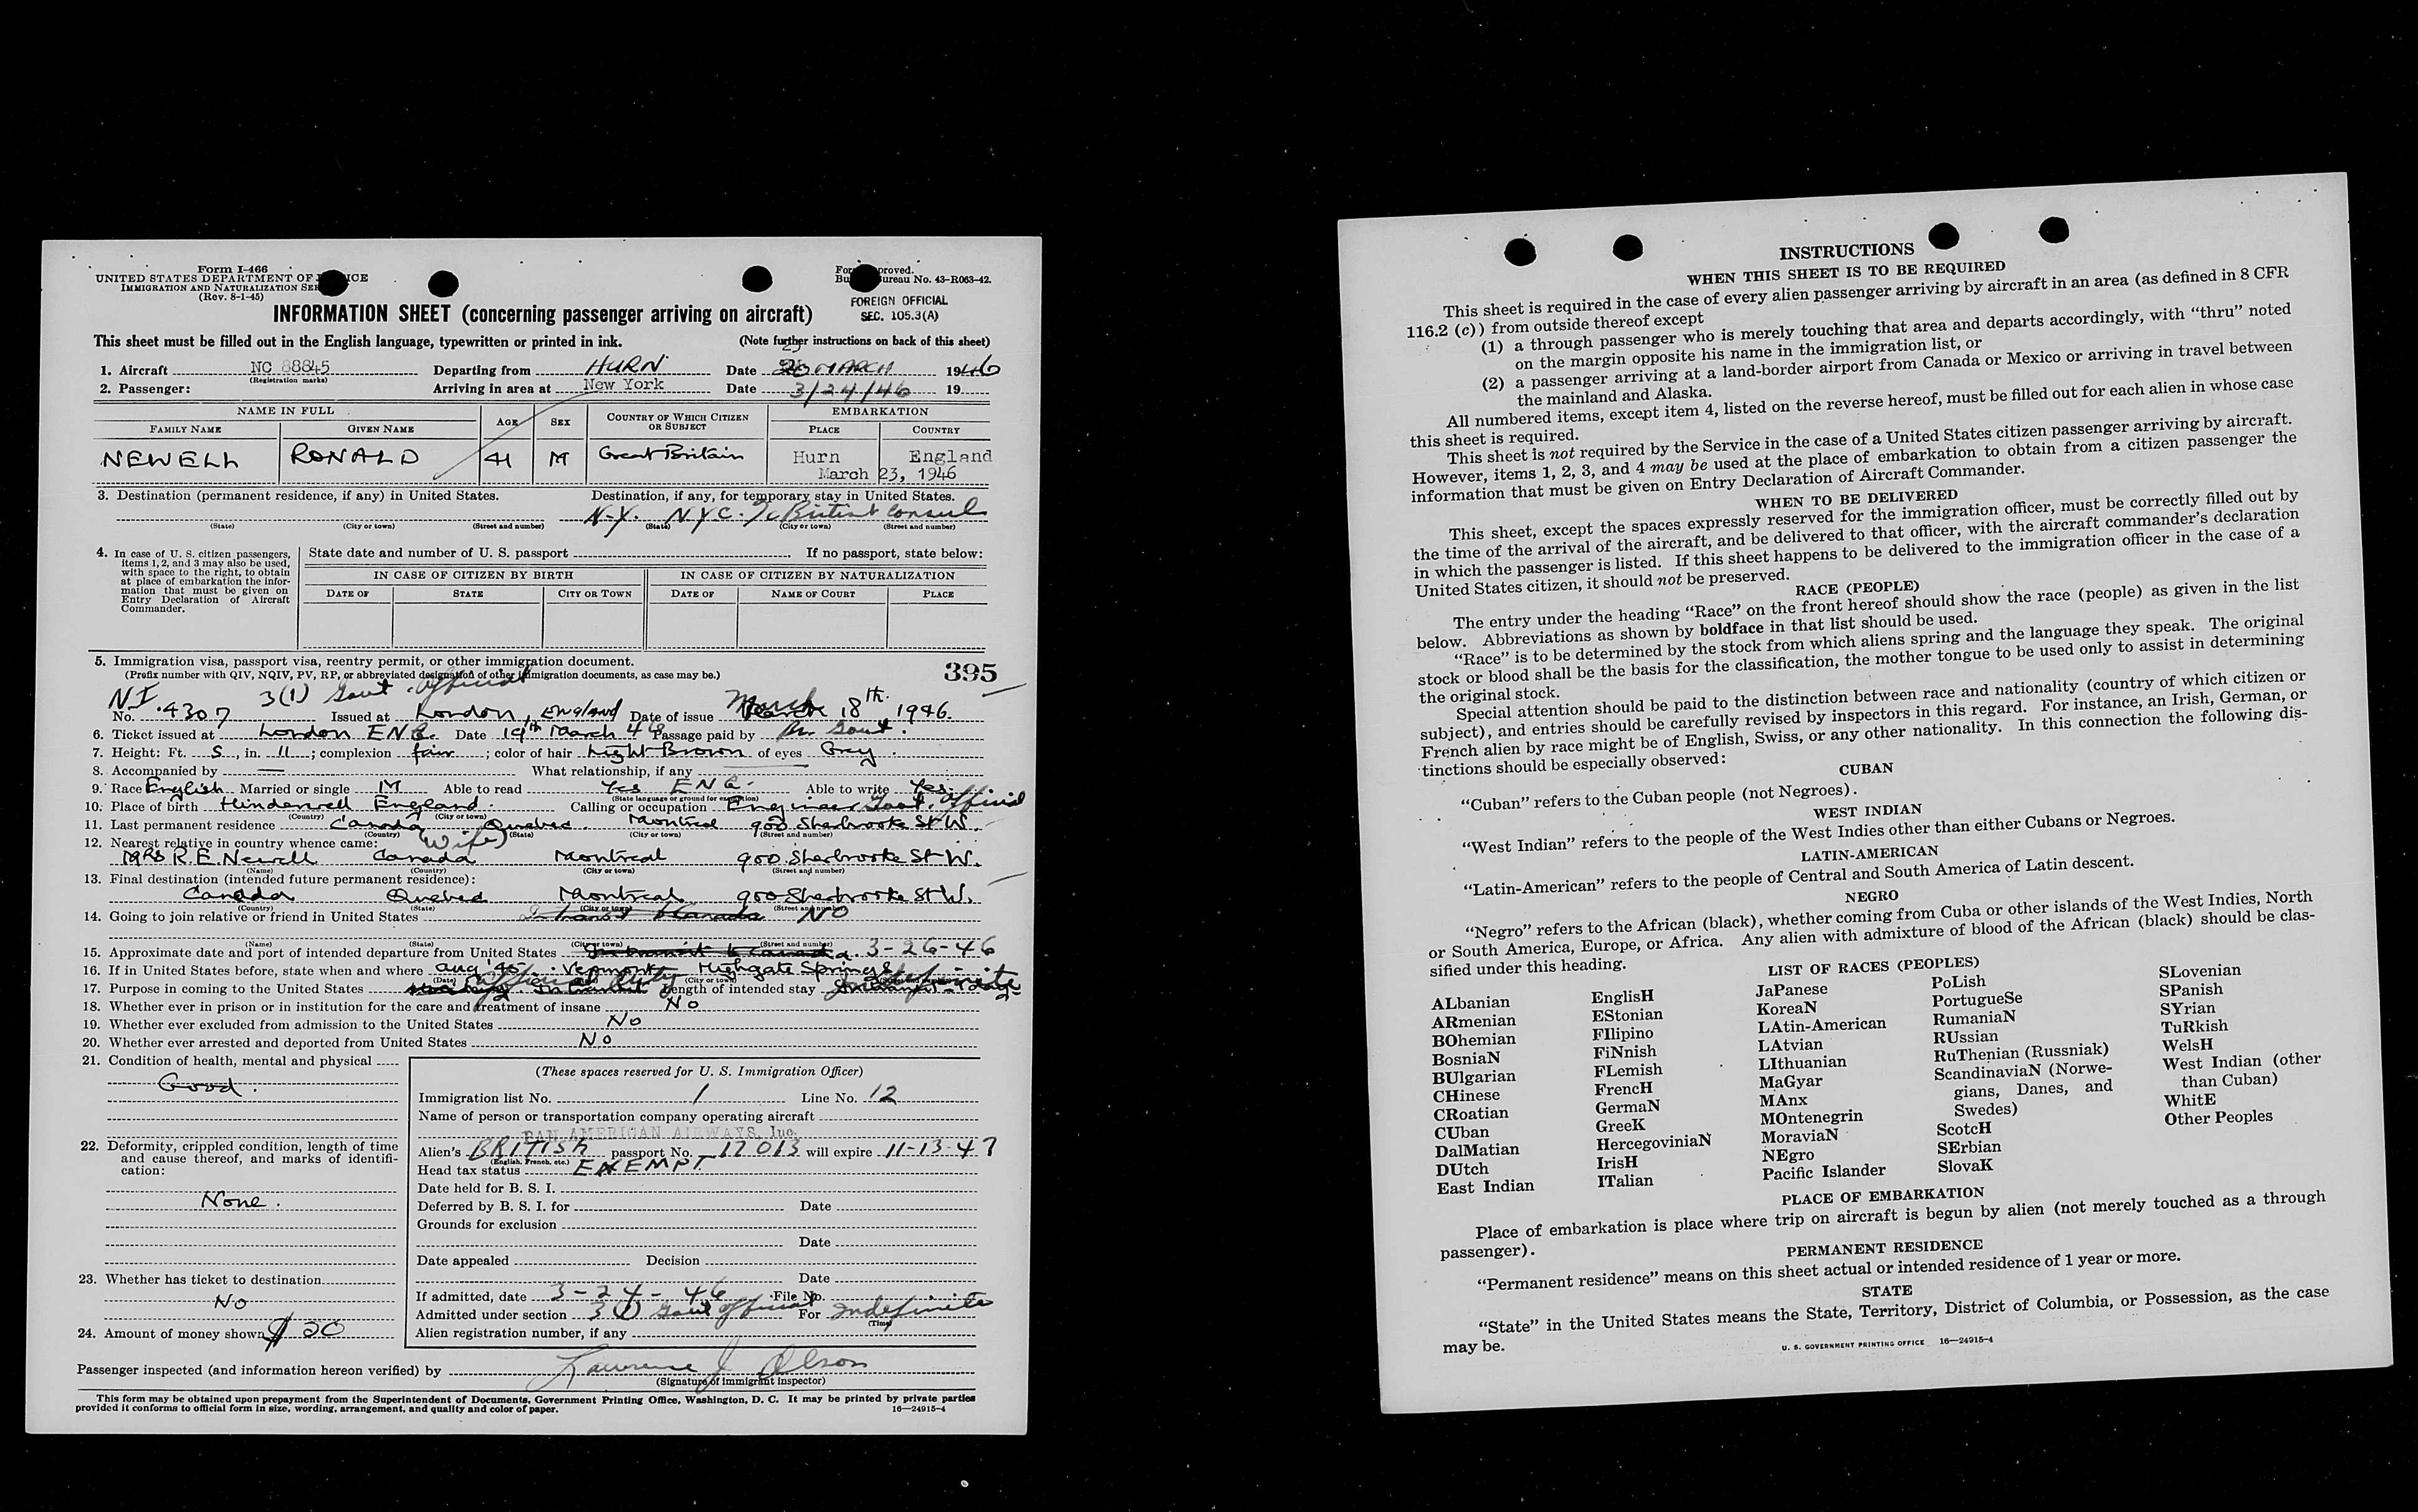 Form I-466
UNITED STATES DEPARTMENT OF
IMMIGRATION AND NATURALIZATION
(Rev. 8-1-45)
No. 43-R063-42.
FOREIGN OFFICIAL
SEC. 105.3(A)
INFORMATION SHEET (concerning passenger arriving on aircraft)
This sheet must be filled out in the English language, typewritten or printed in ink. (Note further instructions on back of this sheet)
1. Aircraft NC 88845 Departing from HURN Date MARCH 1946
(Registration marks)
2. Passenger: Arriving in area at New York Date 3/24/46 19
NAME IN FULL AGE SEX COUNTRY OF WHICH CITIZEN OR SUBJECT EMBARKATION
FAMILY NAME GIVEN NAME PLACE COUNTRY
NEWELL RONALD 41 M Great Britain Hurn England
March 23, 1946
3. Destination (permanent residence, if any) in United States. Destination, if any, for temporary stay in United States.
N.Y. NYC. British Consul
(State) (City or town) (Street and number) (State) (City or town) (Street and number)
4. In case of U. S. citizen passengers, items 1, 2, and 3 may also be used, with space to the right, to obtain at place of embarkation the information that must be given on Entry Declaration of Aircraft Commander.
State date and number of U. S. passport If no passport, state below:
IN CASE OF CITIZEN BY BIRTH IN CASE OF CITIZEN BY NATURALIZATION
DATE OF STATE CITY OR TOWN DATE OF NAME OF COURT PLACE
5. Immigration visa, passport visa, reentry permit, or other immigration document. 395
(Prefix number with QIV, NQIV, PV, RP, or abbreviated designation of other immigration documents, as case may be.)
N.I. 3(1) Govt. Official
No. 4307 Issued at London, England Date of issue March 18th 1946.
6. Ticket issued at London ENG. Date 19th March 46 Passage paid by Br. Govt.
7. Height: Ft. 5, in. 11; complexion fair; color of hair Light Brown of eyes Grey.
8. Accompanied by — What relationship, if any
9. Race English Married or single M Able to read Yes ENG. Able to write Yes.
(State language or ground for exemption)
10. Place of birth Hinderwell England. Calling or occupation Engineer Govt. Official
(Country) (City or town)
11. Last permanent residence Canada Quebec. Montreal 900 Sherbrooke St W.
(Country) (State) (City or town) (Street and number)
12. Nearest relative in country whence came: (Wife)
Mrs R.E. Newell Canada Montreal 900 Sherbrooke St W.
(Name) (Country) (City or town) (Street and number)
13. Final destination (intended future permanent residence):
Canada Quebec Montreal 900 Sherbrooke St W.
(Country) (State) (City or town) (Street and number)
14. Going to join relative or friend in United States In transit to Canada NO
(Name) (State) (City or town) (Street and number)
15. Approximate date and port of intended departure from United States In transit to Canada. 3-26-46
16. If in United States before, state when and where Aug '45. Vermont Highgate Springs
(Date) (City or town)
17. Purpose in coming to the United States official duty length of intended stay Indefinite
18. Whether ever in prison or in institution for the care and treatment of insane No
19. Whether ever excluded from admission to the United States No
20. Whether ever arrested and deported from United States No
21. Condition of health, mental and physical
Good.
22. Deformity, crippled condition, length of time and cause thereof, and marks of identification:
None.
23. Whether has ticket to destination
No
24. Amount of money shown $ 20
(These spaces reserved for U. S. Immigration Officer)
Immigration list No. 1 Line No. 12
Name of person or transportation company operating aircraft
PAN AMERICAN AIRWAYS, Inc.
Alien's BRITISH passport No. 12013 will expire 11-13-47
(English, French, etc.)
Head tax status EXEMPT
Date held for B. S. I.
Deferred by B. S. I. for Date
Grounds for exclusion
Date
Date appealed Decision
Date
If admitted, date 3-24-46 File No.
Admitted under section 3(1) Govt official For Indefinite
(Time)
Alien registration number, if any
Passenger inspected (and information hereon verified) by Lawrence J. Olson
(Signature of immigrant inspector)
This form may be obtained upon prepayment from the Superintendent of Documents, Government Printing Office, Washington, D. C. It may be printed by private parties
provided it conforms to official form in size, wording, arrangement, and quality and color of paper. 16—24915-4
INSTRUCTIONS
WHEN THIS SHEET IS TO BE REQUIRED
This sheet is required in the case of every alien passenger arriving by aircraft in an area (as defined in 8 CFR
116.2 (c)) from outside thereof except
(1) a through passenger who is merely touching that area and departs accordingly, with "thru" noted
on the margin opposite his name in the immigration list, or
(2) a passenger arriving at a land-border airport from Canada or Mexico or arriving in travel between
the mainland and Alaska.
All numbered items, except item 4, listed on the reverse hereof, must be filled out for each alien in whose case
this sheet is required.
This sheet is not required by the Service in the case of a United States citizen passenger arriving by aircraft.
However, items 1, 2, 3, and 4 may be used at the place of embarkation to obtain from a citizen passenger the
information that must be given on Entry Declaration of Aircraft Commander.
WHEN TO BE DELIVERED
This sheet, except the spaces expressly reserved for the immigration officer, must be correctly filled out by
the time of the arrival of the aircraft, and be delivered to that officer, with the aircraft commander's declaration
in which the passenger is listed. If this sheet happens to be delivered to the immigration officer in the case of a
United States citizen, it should not be preserved.
RACE (PEOPLE)
The entry under the heading "Race" on the front hereof should show the race (people) as given in the list
below. Abbreviations as shown by boldface in that list should be used.
"Race" is to be determined by the stock from which aliens spring and the language they speak. The original
stock or blood shall be the basis for the classification, the mother tongue to be used only to assist in determining
the original stock.
Special attention should be paid to the distinction between race and nationality (country of which citizen or
subject), and entries should be carefully revised by inspectors in this regard. For instance, an Irish, German, or
French alien by race might be of English, Swiss, or any other nationality. In this connection the following dis-
tinctions should be especially observed:
CUBAN
"Cuban" refers to the Cuban people (not Negroes).
WEST INDIAN
"West Indian" refers to the people of the West Indies other than either Cubans or Negroes.
LATIN-AMERICAN
"Latin-American" refers to the people of Central and South America of Latin descent.
NEGRO
"Negro" refers to the African (black), whether coming from Cuba or other islands of the West Indies, North
or South America, Europe, or Africa. Any alien with admixture of blood of the African (black) should be clas-
sified under this heading.
LIST OF RACES (PEOPLES)
ALbanian
ARmenian
BOhemian
BosniaN
BUlgarian
CHinese
CRoatian
CUban
DalMatian
DUtch
East Indian
EnglisH
EStonian
FIlipino
FiNnish
FLemish
FrencH
GermaN
GreeK
HercegoviniaN
IrisH
ITalian
JaPanese
KoreaN
LAtin-American
LAtvian
LIthuanian
MaGyar
MAnx
MOntenegrin
MoraviaN
NEgro
Pacific Islander
PoLish
PortugueSe
RumaniaN
RUssian
RuThenian (Russniak)
ScandinaviaN (Norwe-
gians, Danes, and
Swedes)
ScotcH
SErbian
SlovaK
SLovenian
SPanish
SYrian
TuRkish
WelsH
West Indian (other
than Cuban)
WhitE
Other Peoples
PLACE OF EMBARKATION
Place of embarkation is place where trip on aircraft is begun by alien (not merely touched as a through
passenger).
PERMANENT RESIDENCE
"Permanent residence" means on this sheet actual or intended residence of 1 year or more.
STATE
"State" in the United States means the State, Territory, District of Columbia, or Possession, as the case
may be.
U. S. GOVERNMENT PRINTING OFFICE 16—24915-4